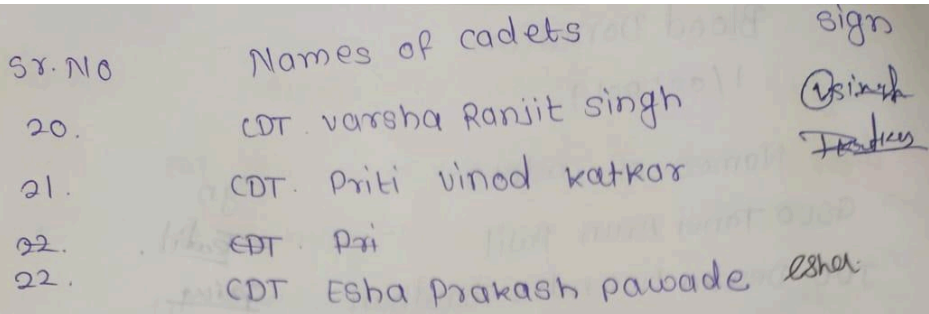 Sr. No Names of cadets sign
20. CDT. varsha Ranjit singh vsingh
21. CDT. Priti vinod katkar
22. CDT. Pri
22. CDT Esha Prakash pawade esha.